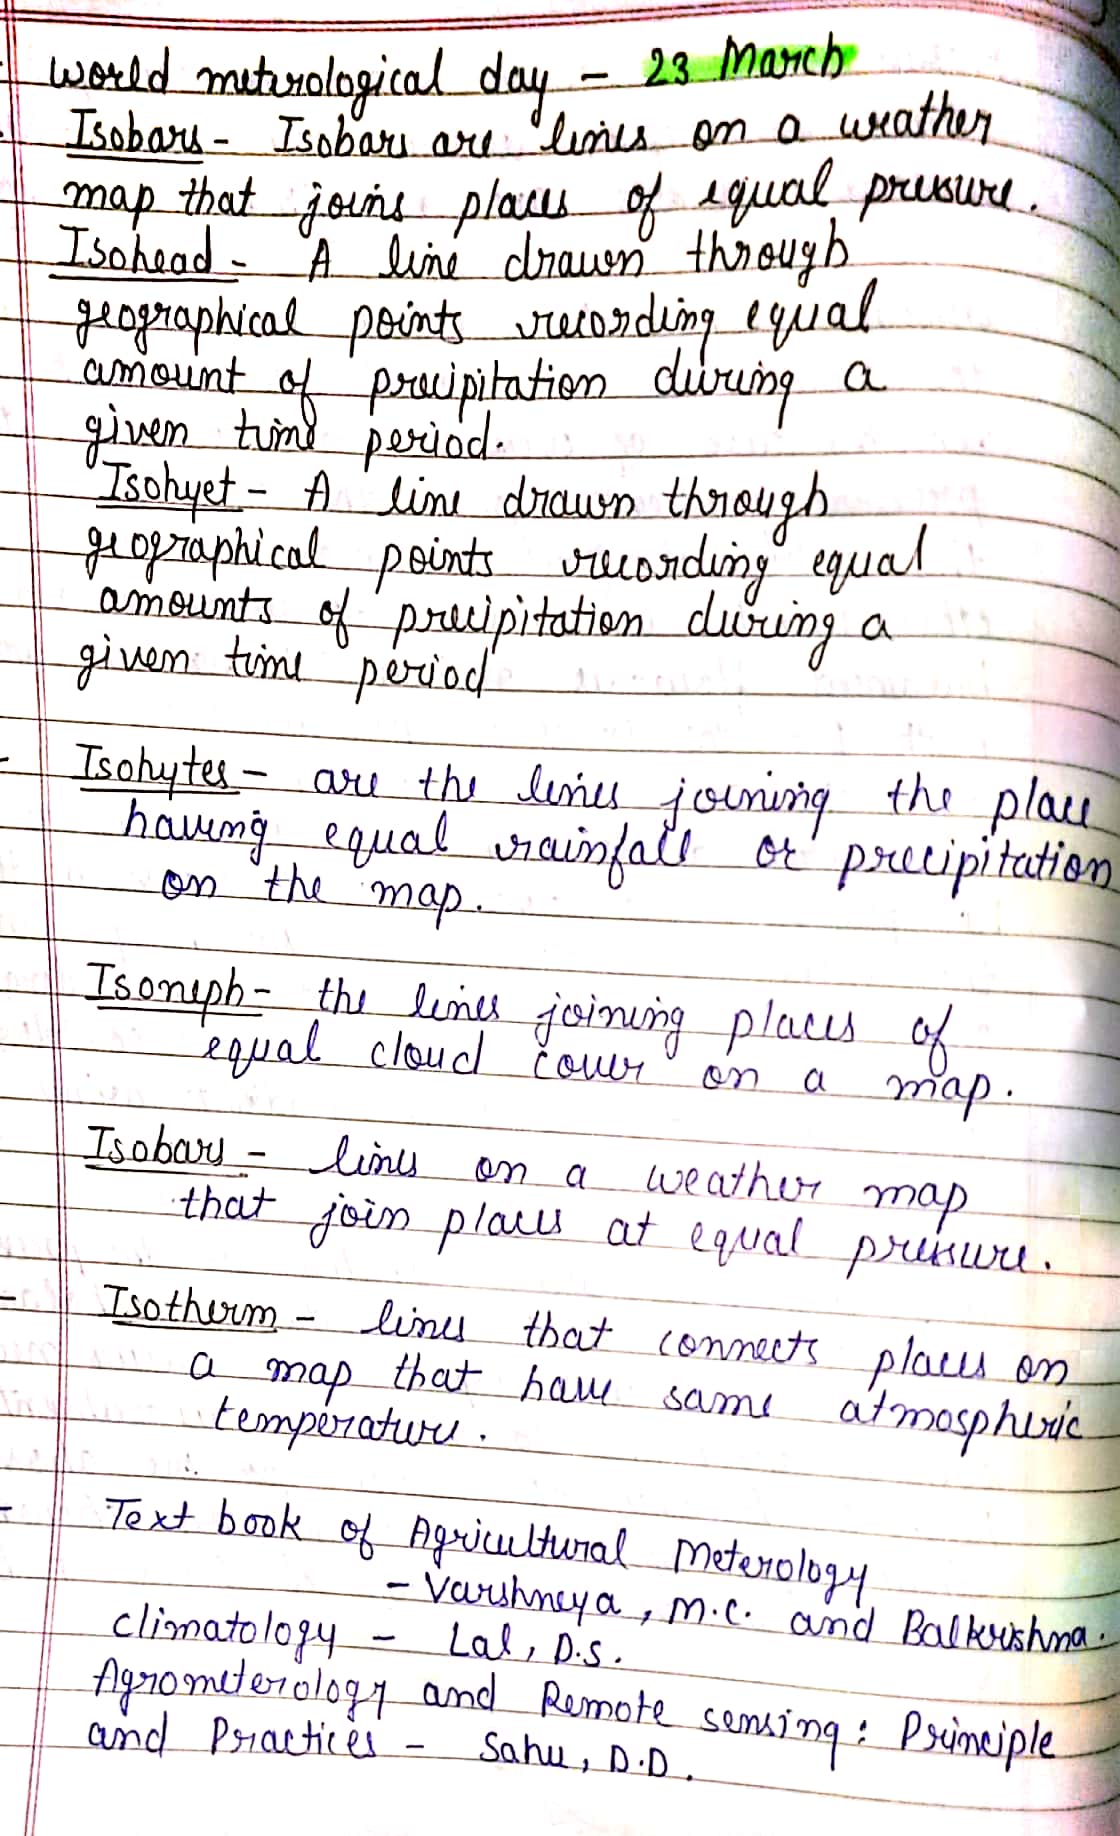 World meterological day - 23 March
Isobars - Isobars are lines on a weather
map that joins places of equal pressure.
Isohead - A line drawn through
geographical points recording equal
amount of precipitation during a
given time period.
Isohyet - A line drawn through
geographical points recording equal
amounts of precipitation during a
given time period
Isohytes - are the lines joining the place
having equal rainfall or precipitation
on the map.
Isoneph - the lines joining places of
equal cloud cover on a map.
Isobars - lines on a weather map
that join places at equal pressure.
Isotherm - lines that connects places on
a map that have same atmospheric
temperature.
Text book of Agricultural Meterology
- Varshneya, M.C. and Balkrishna.
Climatology - Lal, D.S.
Agrometerology and Remote sensing: Principle
and Practices - Sahu, D.D.